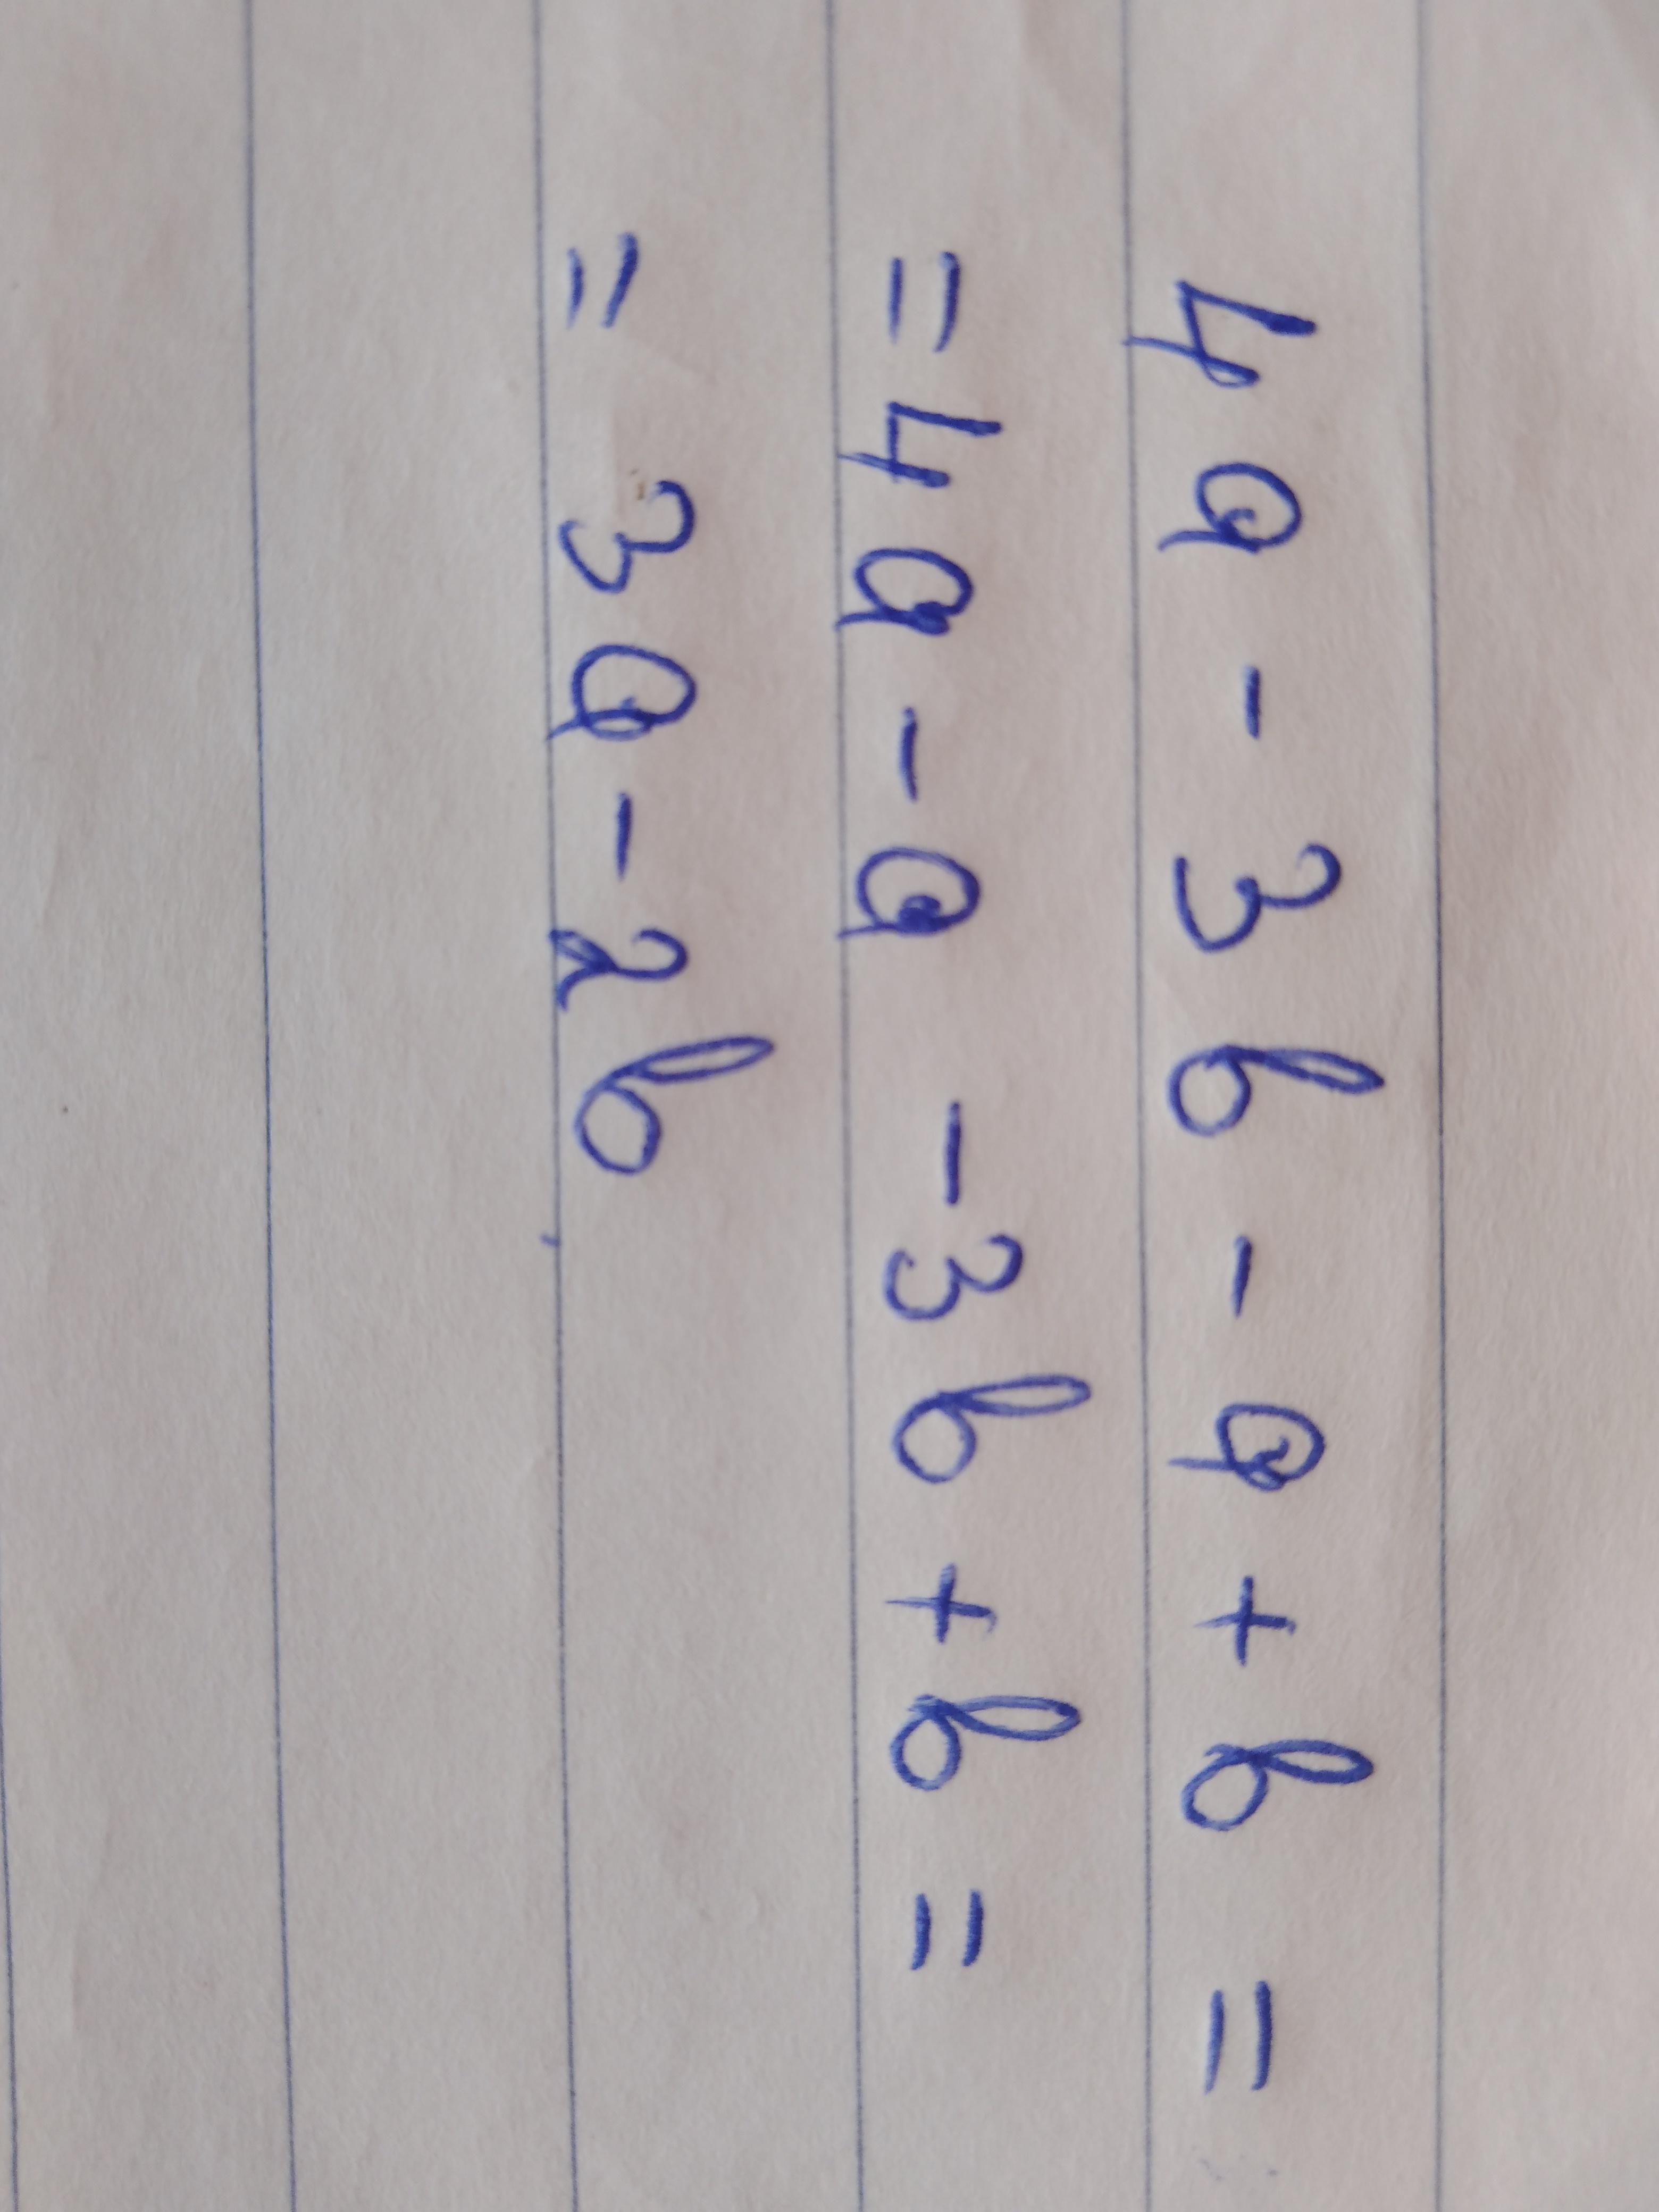 4a - 3b - a + b =
= 4a - a - 3b + b =
= 3a - 2b